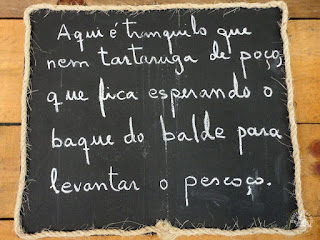 Aqui é tranquilo que
nem tartaruga de poço,
que fica esperando o
baque do balde para
levantar o pescoço.